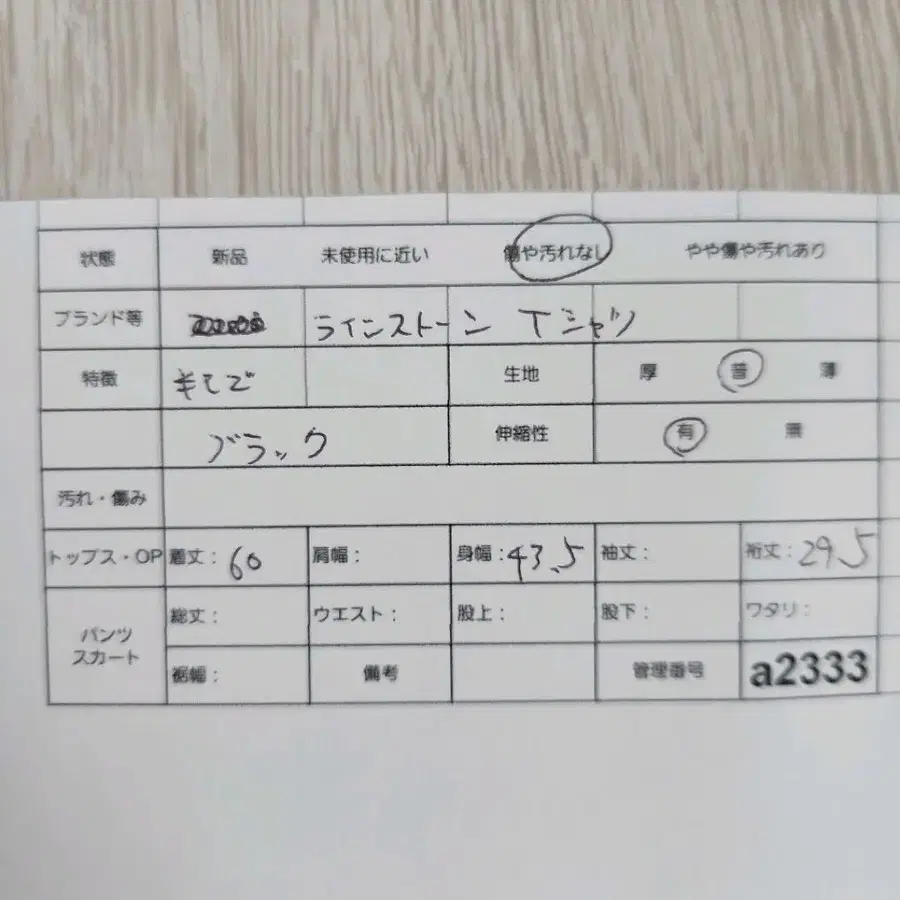 状態 新品 未使用に近い 傷や汚れなし やや傷や汚れあり
ブランド等 ラインストーン Tシャツ
特徴 半そで 生地 厚 普 薄
ブラック 伸縮性 有 無
汚れ・傷み
トップス・OP 着丈：60 肩幅： 身幅：43.5 袖丈： 裄丈：29.5
パンツ スカート 総丈： ウエスト： 股上： 股下： ワタリ：
裾幅： 備考 管理番号 a2333